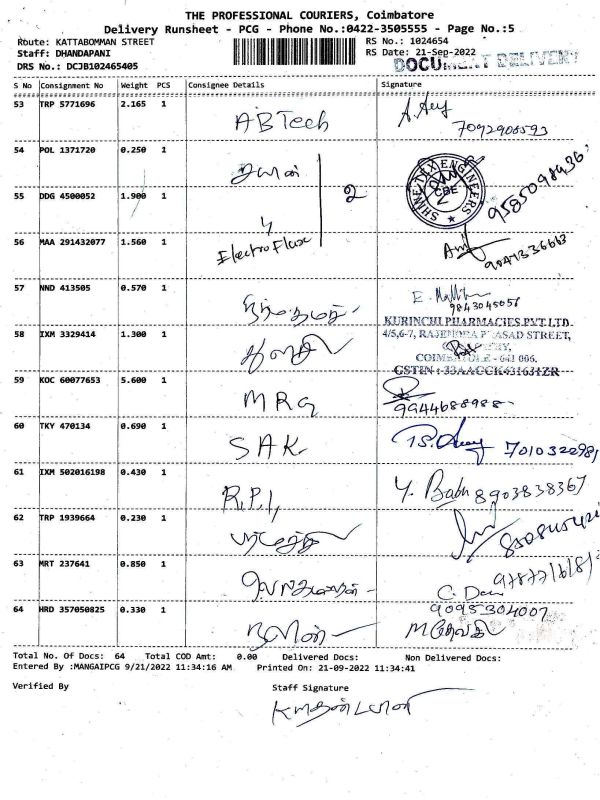 THE PROFESSIONAL COURIERS, Coimbatore
Delivery Runsheet - PCG - Phone No.:0422-3505555 - Page No.:5
Route: KATTABOMMAN STREET RS No.: 1024654
Staff: DHANDAPANI RS Date: 21-Sep-2022
DRS No.: DCJB102465405 DOCUMENT DELIVERY
S No Consignment No Weight PCS Consignee Details Signature
53 TRP 5771696 2.165 1 ABTech
7092906593
54 POL 1371720 0.250 1
SHINE TEX ENGINEERS CBE
55 DDG 4500052 1.900 1 2 9585098436
56 MAA 291432077 1.560 1 ElectroFlux
9041336663
57 NND 413505 0.570 1
9843045056
KURINCHI PHARMACIES PVT LTD
58 IXM 3329414 1.300 1 4/5,6-7, RAJENDRA PRASAD STREET,
COIMBATORE - 641 006.
GSTIN : 33AACCK431631ZR
59 KOC 60077653 5.600 1 MRG
9944688988
60 TKY 470134 0.690 1 SAK 701032298
61 IXM 502016198 0.430 1 R.P.I, Y. Babu 8903838367
62 TRP 1939664 0.230 1
63 MRT 237641 0.850 1
9095304007
64 HRD 357050825 0.330 1
Total No. Of Docs: 64 Total COD Amt: 0.00 Delivered Docs: Non Delivered Docs:
Entered By :MANGAIPCG 9/21/2022 11:34:16 AM Printed On: 21-09-2022 11:34:41
Verified By Staff Signature